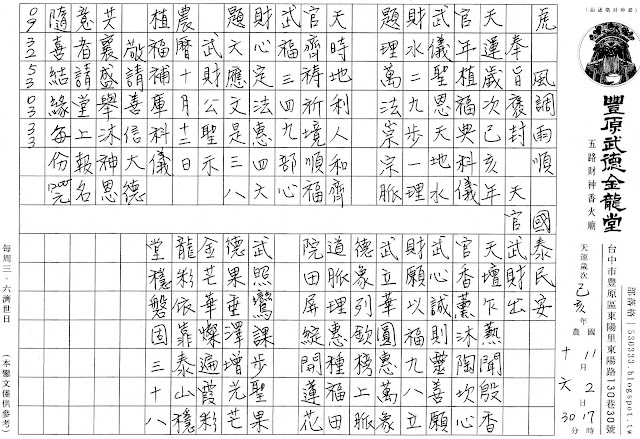 虎 風調雨順 國泰民安
奉旨褒封 天官武財出
天運歲次己亥年
官年植福典科儀
武儀聖思天地水
財水二九步一理
題理萬法崇宗脈
天時地利人和齊
官齊禱祈境順福
武福三四九部心
財心定法惠四六
題文應文是三八
武財公聖示
農曆十月十二日
植福補庫科儀
敬請善信大德
共襄盛舉沐神恩
意者請堂上報名
隨喜結緣每份1200元
0932530333
天壇乍爇聞殷香
官香薰沐陶坎心
武心誠則靈善願
財願以福九八立
武立華圓惠萬象
德象列欽榜上脈
道脈理惠種福田
院田屏綻開蓮花
武照鸞課步聖果
德果垂澤增光芒
金芒華燦遍霞彩
龍彩依靠泰山穩
堂穩磐固三十八
豐原武德金龍堂
五路財神香火廟
部落格|530333.blogspot.tw
台中市豐原區東陽里東陽路130巷30號
天運歲次己亥年
國 11月2日17時30分
農 十 六
每周三、六濟世日
(本鸞文僅供參考)